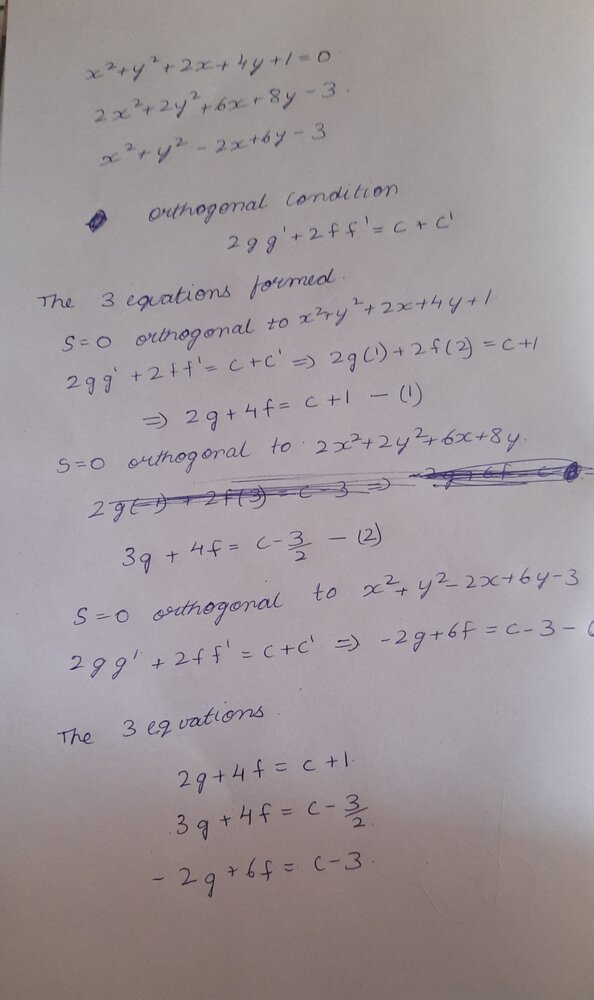 x²+y²+2x+4y+1=0
2x²+2y²+6x+8y-3.
x²+y²-2x+6y-3
orthogonal condition
2gg'+2ff'=c+c'
The 3 equations formed.
S=0 orthogonal to x²+y²+2x+4y+1
2gg'+2ff'=c+c' ⇒ 2g(1)+2f(2)=c+1
⇒ 2g+4f=c+1 - (1)
S=0 orthogonal to 2x²+2y²+6x+8y.
2g(-1)+2f(3)=c-3 ⇒ -2g+6f=c
3g+4f=c-3/2 - (2)
S=0 orthogonal to x²+y²-2x+6y-3
2gg'+2ff'=c+c' ⇒ -2g+6f=c-3-(
The 3 equations.
2g+4f=c+1.
3g+4f=c-3/2.
-2g+6f=c-3.